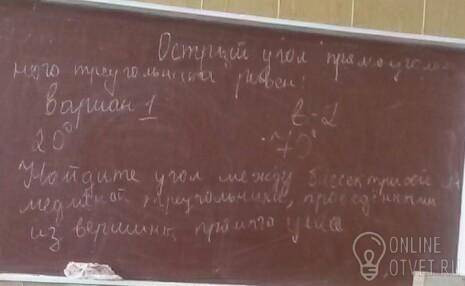 Острый угол прямоуголь
ного треугольника равен:
Вариан 1 в-2
20° 70°
Найдите угол между биссектрисой и
медианой треугольника, проведёнными
из вершины прямого угла
ONLINE
OTVET.RU